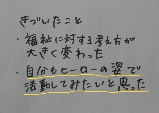 きづいたこと
・福祉に対する考え方が
大きく変わった
・自分もヒーローの姿で
活動してみたいと思った